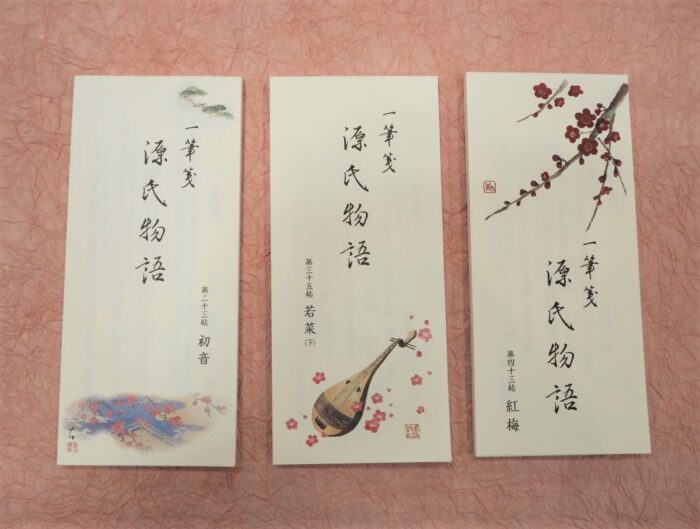 一筆箋
源氏物語
第二十三帖 初音
一筆箋
源氏物語
第三十五帖 若菜(下)
一筆箋
源氏物語
第四十三帖 紅梅